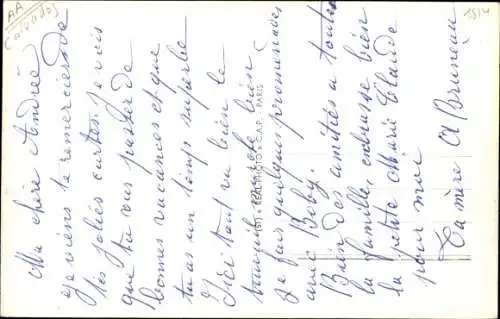 AA
Calvados
Ma chère Andrée
je viens te remercier de
tes jolies cartes. je vois
que tu vas passer de
bonnes vacances et que
tu as un temps superbe
Ici tout va bien le
travail marche bien
je fais quelques promenades
avec Boby.
Bien des amitiés a toute
la famille, embrasse bien
la petite Marie Claude
pour moi
Ta mère A Bruneau
(51) • REALPHOTO • C.A.P. - PARIS